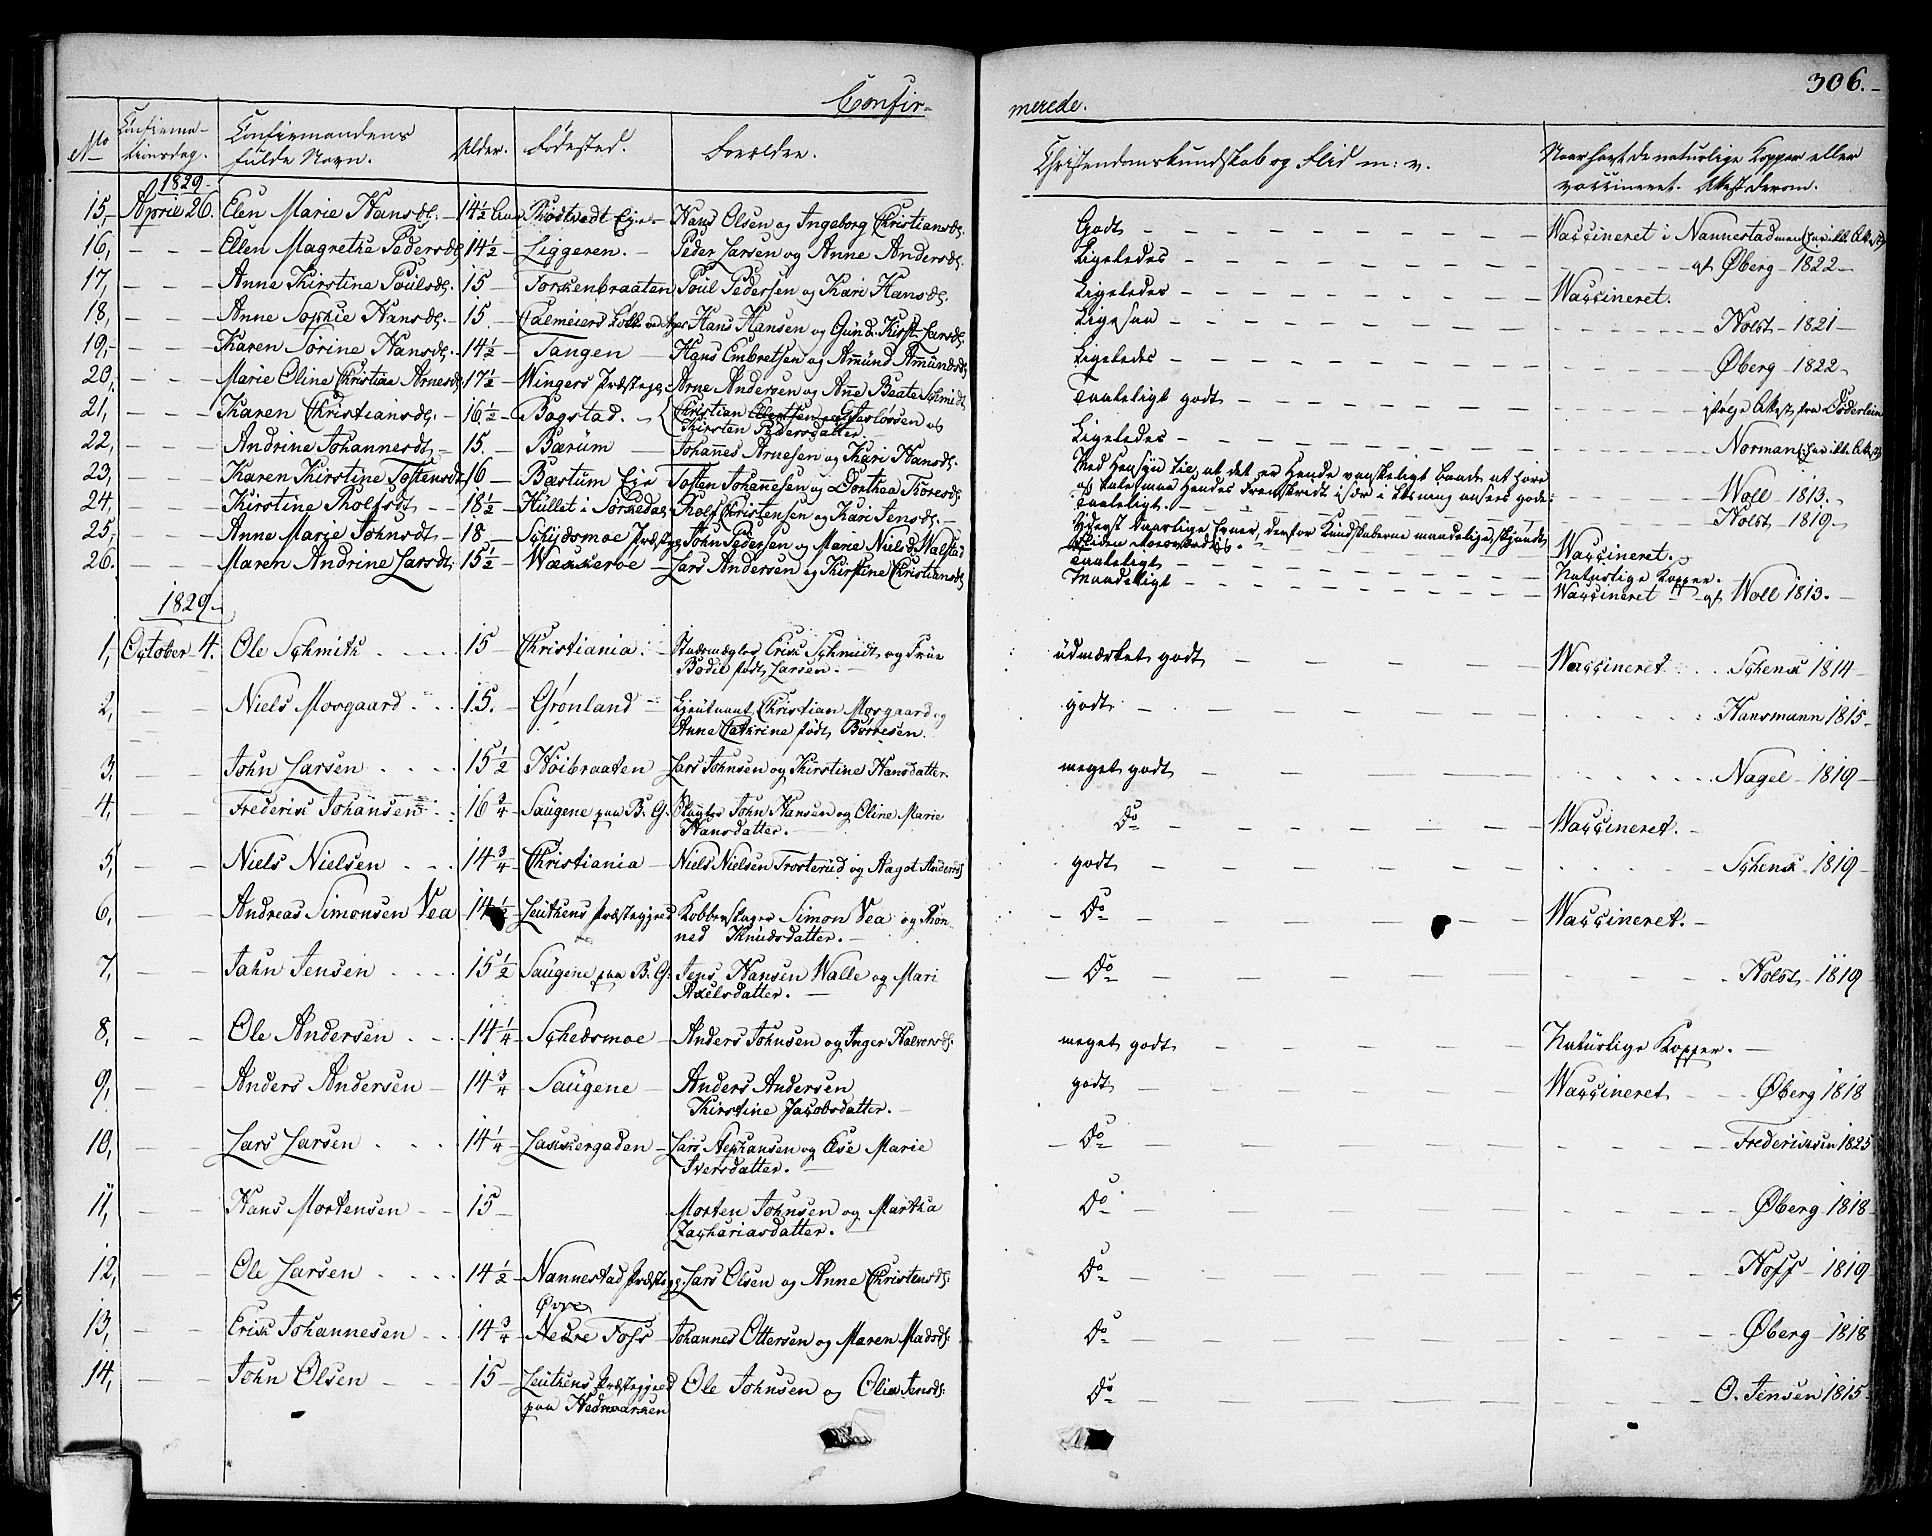 306.
Confir-
merede.
No
Confirma-
tionsdag.
Confirmandens
fulde Navn.
Alder.
Fødested.
Forældre.
Christendomskundskab og Flid m: v.
Naar havt de naturlige Kopper eller
vaccineret. Attest derom.
1829
15, April 26. Elen Marie Hansd. 14½ Hans Olsen og Ingeborg Christiansd. Godt Vaccineret i Nannestad
16, Ellen Magrethe Pedersd. 14½ Liggeren. Peder Larsen og Anne Andersd. Ligeledes af Øberg 1822
17, Anne Kirstine Poulsd. 15 Torskenbraaten Poul Pedersen og Kari Hansd. Ligeledes Vaccineret.
18, Anne Sophie Hansd. 15 Hans Hansen og Gund. Kirst. Larsd. Ligesaa Holst 1821
19, Karen Torine Hansd. 14½ Tangen Hans Embretsen og Amund Amundsd. Ligeledes Øberg 1822
20, Marie Oline Christine Arnesd. 17½ Wingers Præsteg. Arne Andersen og Ane Beate Schmidt Taaleligt godt ifølge Attest fra Döderlein
21, Karen Christiansd. 16½ Bogstad. Christian
Kirsten Pedersdatter.
22, Andrine Johannesdt. 15. Bærum Johannes Arnesen og Kari Hansd. Ligeledes Norman
23, Karen Kirstine Toftensdt. 16 Bærum Eje Toften Johannesen og Dorthea Thoresd. Med Hensyn til, at det er Hende vanskeligt baade at høre
og tale maa Hendes Fremskridt især i Læsning ansees gode. Woll 1813.
24, Kirstine Rolfsdt. 18½ Hullet i Sørkedal Rolf Christensen og Kari Jensd. Taaleligt. Holst 1819
25, Anne Marie Johnsdt. 18 Schydsmoe Præsteg. John Pedersen og Marie Nielsd. Walstad Yderst daarlige Evner, derfor Kundskaberne maadelige, skjøndt
Fliden roesværdig. Vaccineret.
26. Maren Andrine Larsdt. 15½ Wækkeroe Lars Andersen og Kirstine Christiansd. Taaleligt Naturlige Kopper.
Maadeligt Vaccineret af Woll 1813.
1829
1, October 4. Ole Schmith 15 Christiania. Erik Schmidt og Frue
Bodil født Larsen. udmærket godt Vaccineret Schenk 1814
2, Niels Morgaard 15. Grønland Lieutnant Christian Morgaard og
Anne Cathrine født Borresen. godt Hansmann 1815
3, John Larsen 15½ Høibraaten Lars Johnsen og Kirstine Hansdatter. meget godt Nagel 1819
4, Frederik Johansen 16¾ Saugene paa B. G. Slagter John Hansen og Oline Marie
Hansdatter. Do Vaccineret.
5, Niels Nielsen 14¾ Christiania Niels Nielsen Trosterud og Aagot Andersd. godt Schenk 1819
6, Andreas Simonsen Vea 14½ Leuthens Præstegjeld Kobberslager Simon Vea og Ron-
ned Knudsdatter. Do Vaccineret.
7, John Jensen 15½ Saugene paa B. G. Jens Hansen Walle og Mari
Axelsdatter. Do Holst 1819
8, Ole Andersen 14¼ Schedsmoe Anders Johnsen og Inger Halvorsd. meget godt Naturlige Kopper.
9, Anders Andersen 14¾ Saugene Anders Andersen
Kirstine Jacobsdatter. godt Vaccineret Øberg 1818
10, Lars Larsen 14¼ Lakkergaden Lars Stephansen og Else Marie
Iversdatter. Do Frederiksen 1825
11, Hans Mortensen 15 Morten Johnsen og Martha
Zachariasdatter. Do Øberg 1818
12, Ole Larsen 14½ Nannestad Præsteg. Lars Olsen og Anne Christensd. Do Hoff 1819
Øvre
13, Erik Johannesen 14¾ Nedre Foss Johannes Ottersen og Maren Madsd. Do Øberg 1818
14, John Olsen 15 Leuthens Præstegjeld
paa Hedmarken Ole Johnsen og Oline Jensd. Do O. Jensen 1815